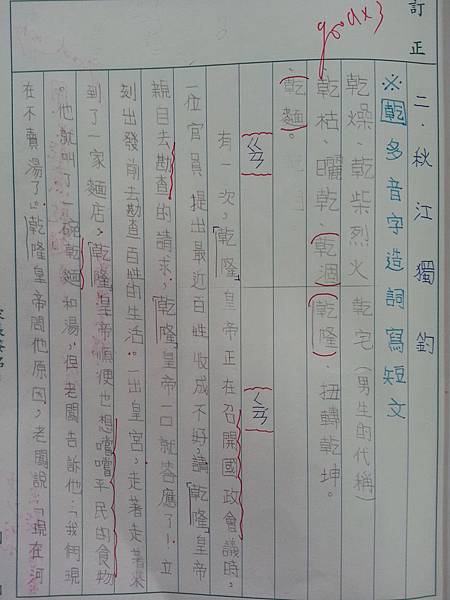 訂正
二．秋江獨釣
※乾多音字造詞寫短文
乾燥、乾柴烈火 乾宅（男生的代稱）
乾枯、曬乾、乾涸 乾隆、扭轉乾坤。
乾麵。
goodx3
ㄍㄢ
有一次，乾隆皇帝正在召開國政會議時，
一位官員提出最近百姓收成不好，請乾隆皇帝
親自去勘查的請求，乾隆皇帝一口就答應了！立
刻出發前去勘查百姓的生活。一出皇宮，走著走著來
到了一家麵店，乾隆皇帝順便也想嚐嚐平民的食物
。他就叫了一碗乾麵和湯，但老闆告訴他：「我們現
在不賣湯了。」乾隆皇帝問他原因，老闆說：「現在河